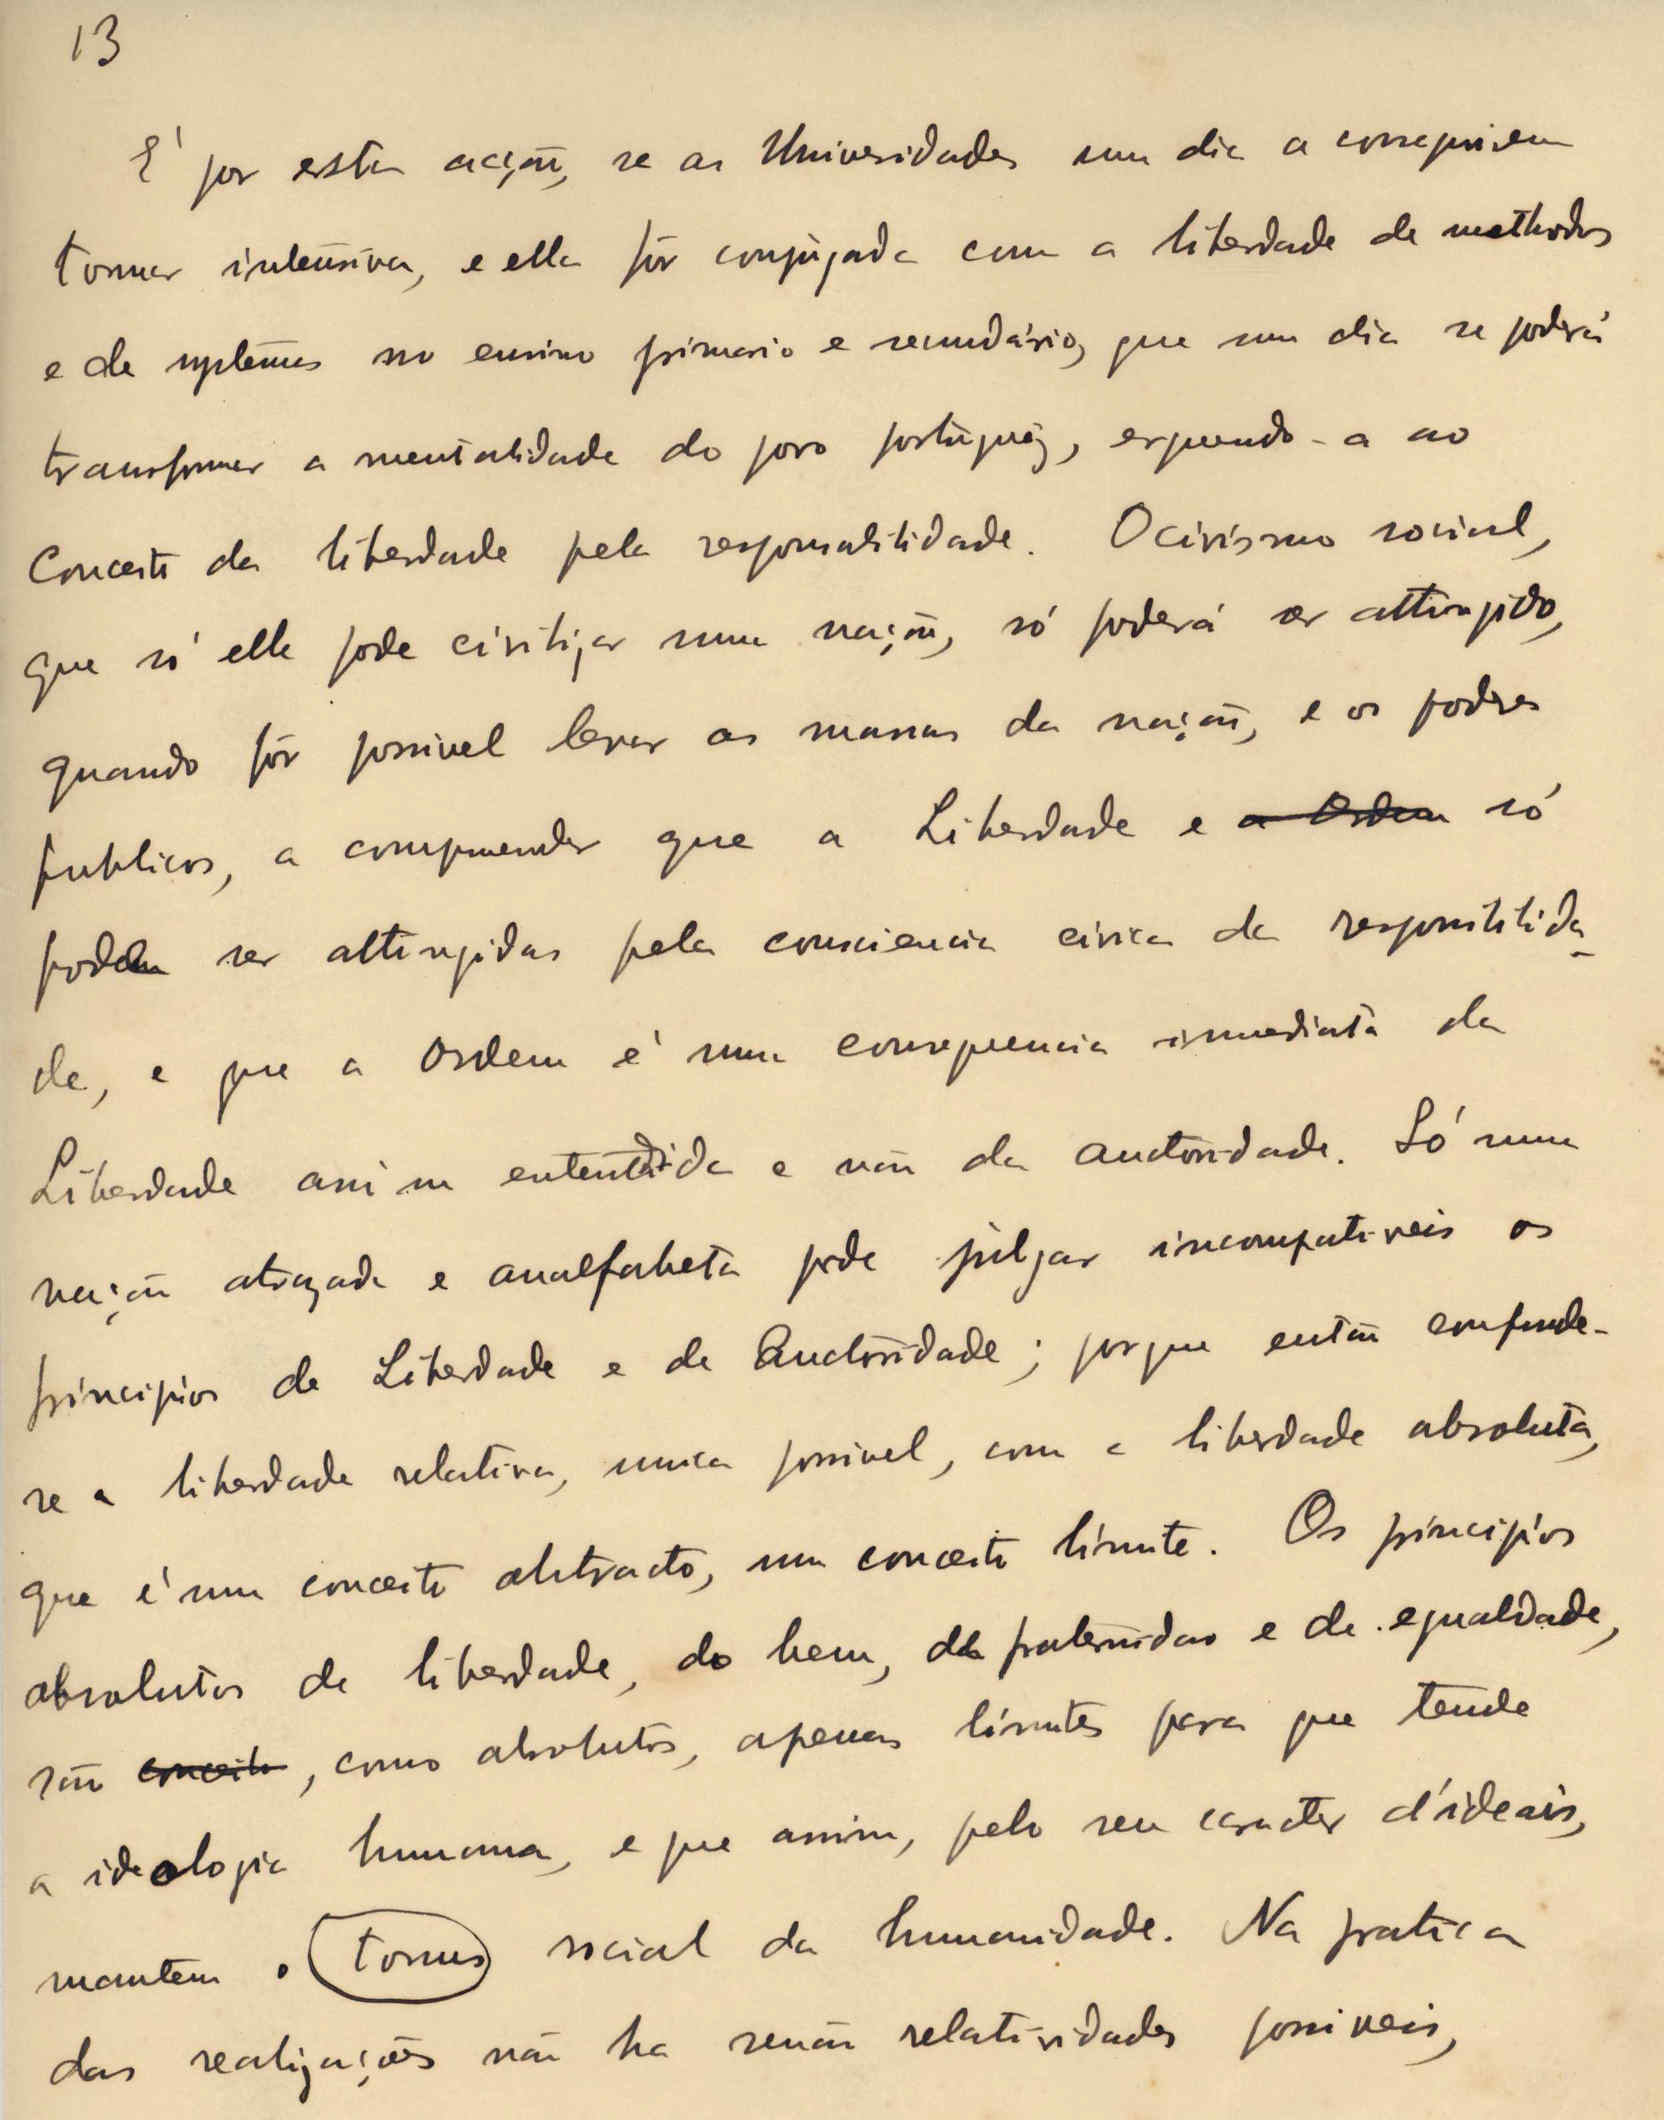 13
É por esta acção, se as Universidades um dia a conseguirem
tornar intensiva, e ella fôr conjugada com a liberdade de methodos
e de systemas no ensino primario e secundário, que um dia se poderá
transformar a mentalidade do povo portuguêz, erguendo-a ao
conceito da liberdade pela responsabilidade. O civismo social,
que só elle pode civilizar uma nação, só poderá ser attingido,
quando fôr possivel levar as massas da nação, e os podres
publicos, a comprehender que a Liberdade e a Ordem só
podem ser attingidas pela consciencia civica da responsibilida-
de, e que a Ordem é uma consequencia immediata da
Liberdade assim entendida e não da auctoridade. Só uma
nação atrazada e analfabeta pode julgar incompativeis os
principios de Liberdade e de Auctoridade; porque então confunde-
se a liberdade relativa, unica possivel, com a liberdade absoluta,
que é um conceito abstracto, um conceito limite. Os principios
absolutos de liberdade, do bem, da fraternidade e de egualdade,
são conceito, como absolutos, apenas limites para que tende
a ideologia humana, e que assim, pelo seu caracter d'ideais,
mantem o tonus social da humanidade. Na pratica
das realizações não ha senão relatividades possiveis,